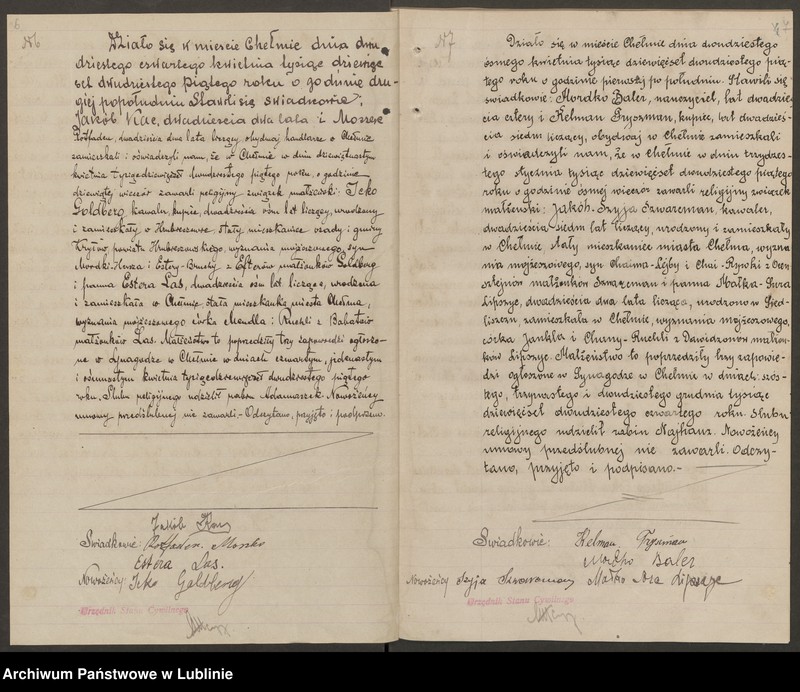 6
№6
Działo się w mieście Chełmie dnia dwu-
dziestego czwartego kwietnia tysiąc dziewięć-
set dwudziestego piątego roku o godzinie dru-
giej popołudniu Stawili się świadkowie:
Jakób Kac, dwadzieścia dwa lata i Moszek
Rotfaden, dwadzieścia dwa lata liczący, obydwaj handlarze w Chełmie
zamieszkali i oświadczyli nam, że w Chełmie w dniu dziewiętnastym
kwietnia tysiąc dziewięćset dwudziestego piątego roku, o godzinie
dziewiątej wieczór zawarli religijny związek małżeński: Icko
Goldberg, kawaler, kupiec, dwadzieścia ośm lat liczący, urodzony
i zamieszkały w Hrubieszowie stały mieszkaniec osady i gminy
Kryłów, powiatu Hrubieszowskiego, wyznania mojżeszowego, syn
małżonków Goldberg
i panna Estera Las, dwadzieścia ośm lat licząca, urodzona
i zamieszkała w Chełmie, stała mieszkanka miasta Chełma,
wyznania mojżeszowego córka Mendla i Ruchli z
małżonków Las. Małżeństwo to poprzedziły trzy zapowiedzi ogłoszo-
ne w Synagodze w Chełmie w dniach czwartym, jedenastym
i ośmnastym kwietnia tysiąc dziewięćset dwudziestego piątego
roku. Ślubu religijnego udzielił rabin Nowożeńcy
umowy przedślubnej nie zawarli.- Odczytano, przyjęto i podpisano.
Jakób Kac
Świadkowie: Rotfaden Moszko
Estera Las.
Nowożeńcy: Icko Goldberg
Urzędnik Stanu Cywilnego
№7
Działo się w mieście Chełmie dnia dwudziestego
ósmego kwietnia tysiąc dziewięćset dwudziestego pią-
tego roku o godzinie pierwszej po południu. Stawili się
świadkowie: Mordko Baler, nauczyciel, lat dwadzieś-
cia cztery i Kelman Fryszman, kupiec, lat dwadzieś-
cia siedm liczący, obydwaj w Chełmie zamieszkali
i oświadczyli nam, że w Chełmie w dniu trzydzes-
tego stycznia tysiąc dziewięćset dwudziestego piątego
roku o godzinie ósmej wieczór zawarli religijny związek
małżeński: Jakób-Szyja Szwarcman, kawaler,
dwadzieścia siedm lat liczący, urodzony i zamieszkały
w Chełmie stały mieszkaniec miasta Chełma, wyzna-
nia mojżeszowego, syn Chaima-Lejby i Chai-Rywki z
małżonków Szwarcman i panna Małka-Sura
Lipszyc, dwadzieścia dwa lata licząca, urodzona w Sied-
liszczu, zamieszkała w Chełmie, wyznania mojżeszowego,
córka Jankla i Chany-Ruchli z Dawidzonów małżon-
ków Lipszyc. Małżeństwo to poprzedziły trzy zapowie-
dzi ogłoszone w Synagodze w Chełmie w dniach: szós-
tego, trzynastego i dwudziestego grudnia tysiąc
dziewięćset dwudziestego czwartego roku. Ślubu
religijnego udzielił rabin Najhauz. Nowożeńcy
umowy przedślubnej nie zawarli. Odczy-
tano, przyjęto i podpisano.-
Świadkowie: Kelman Fryszman
Mordko Baler
Nowożeńcy Szyja Szwarcman Małka Lipszyc
Urzędnik Stanu Cywilnego
Archiwum Państwowe w Lublinie